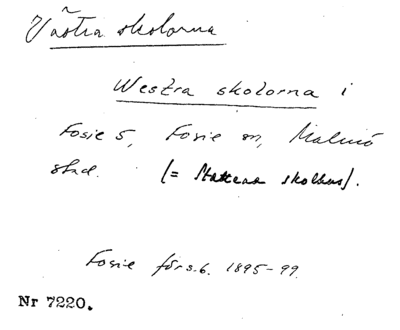 Västra skolorna
Westra skolorna i
Fosie 5, Fosie sn, Malmö
stad. (= skolhus).
Fosie förs.b. 1895-99.
Nr 7220.